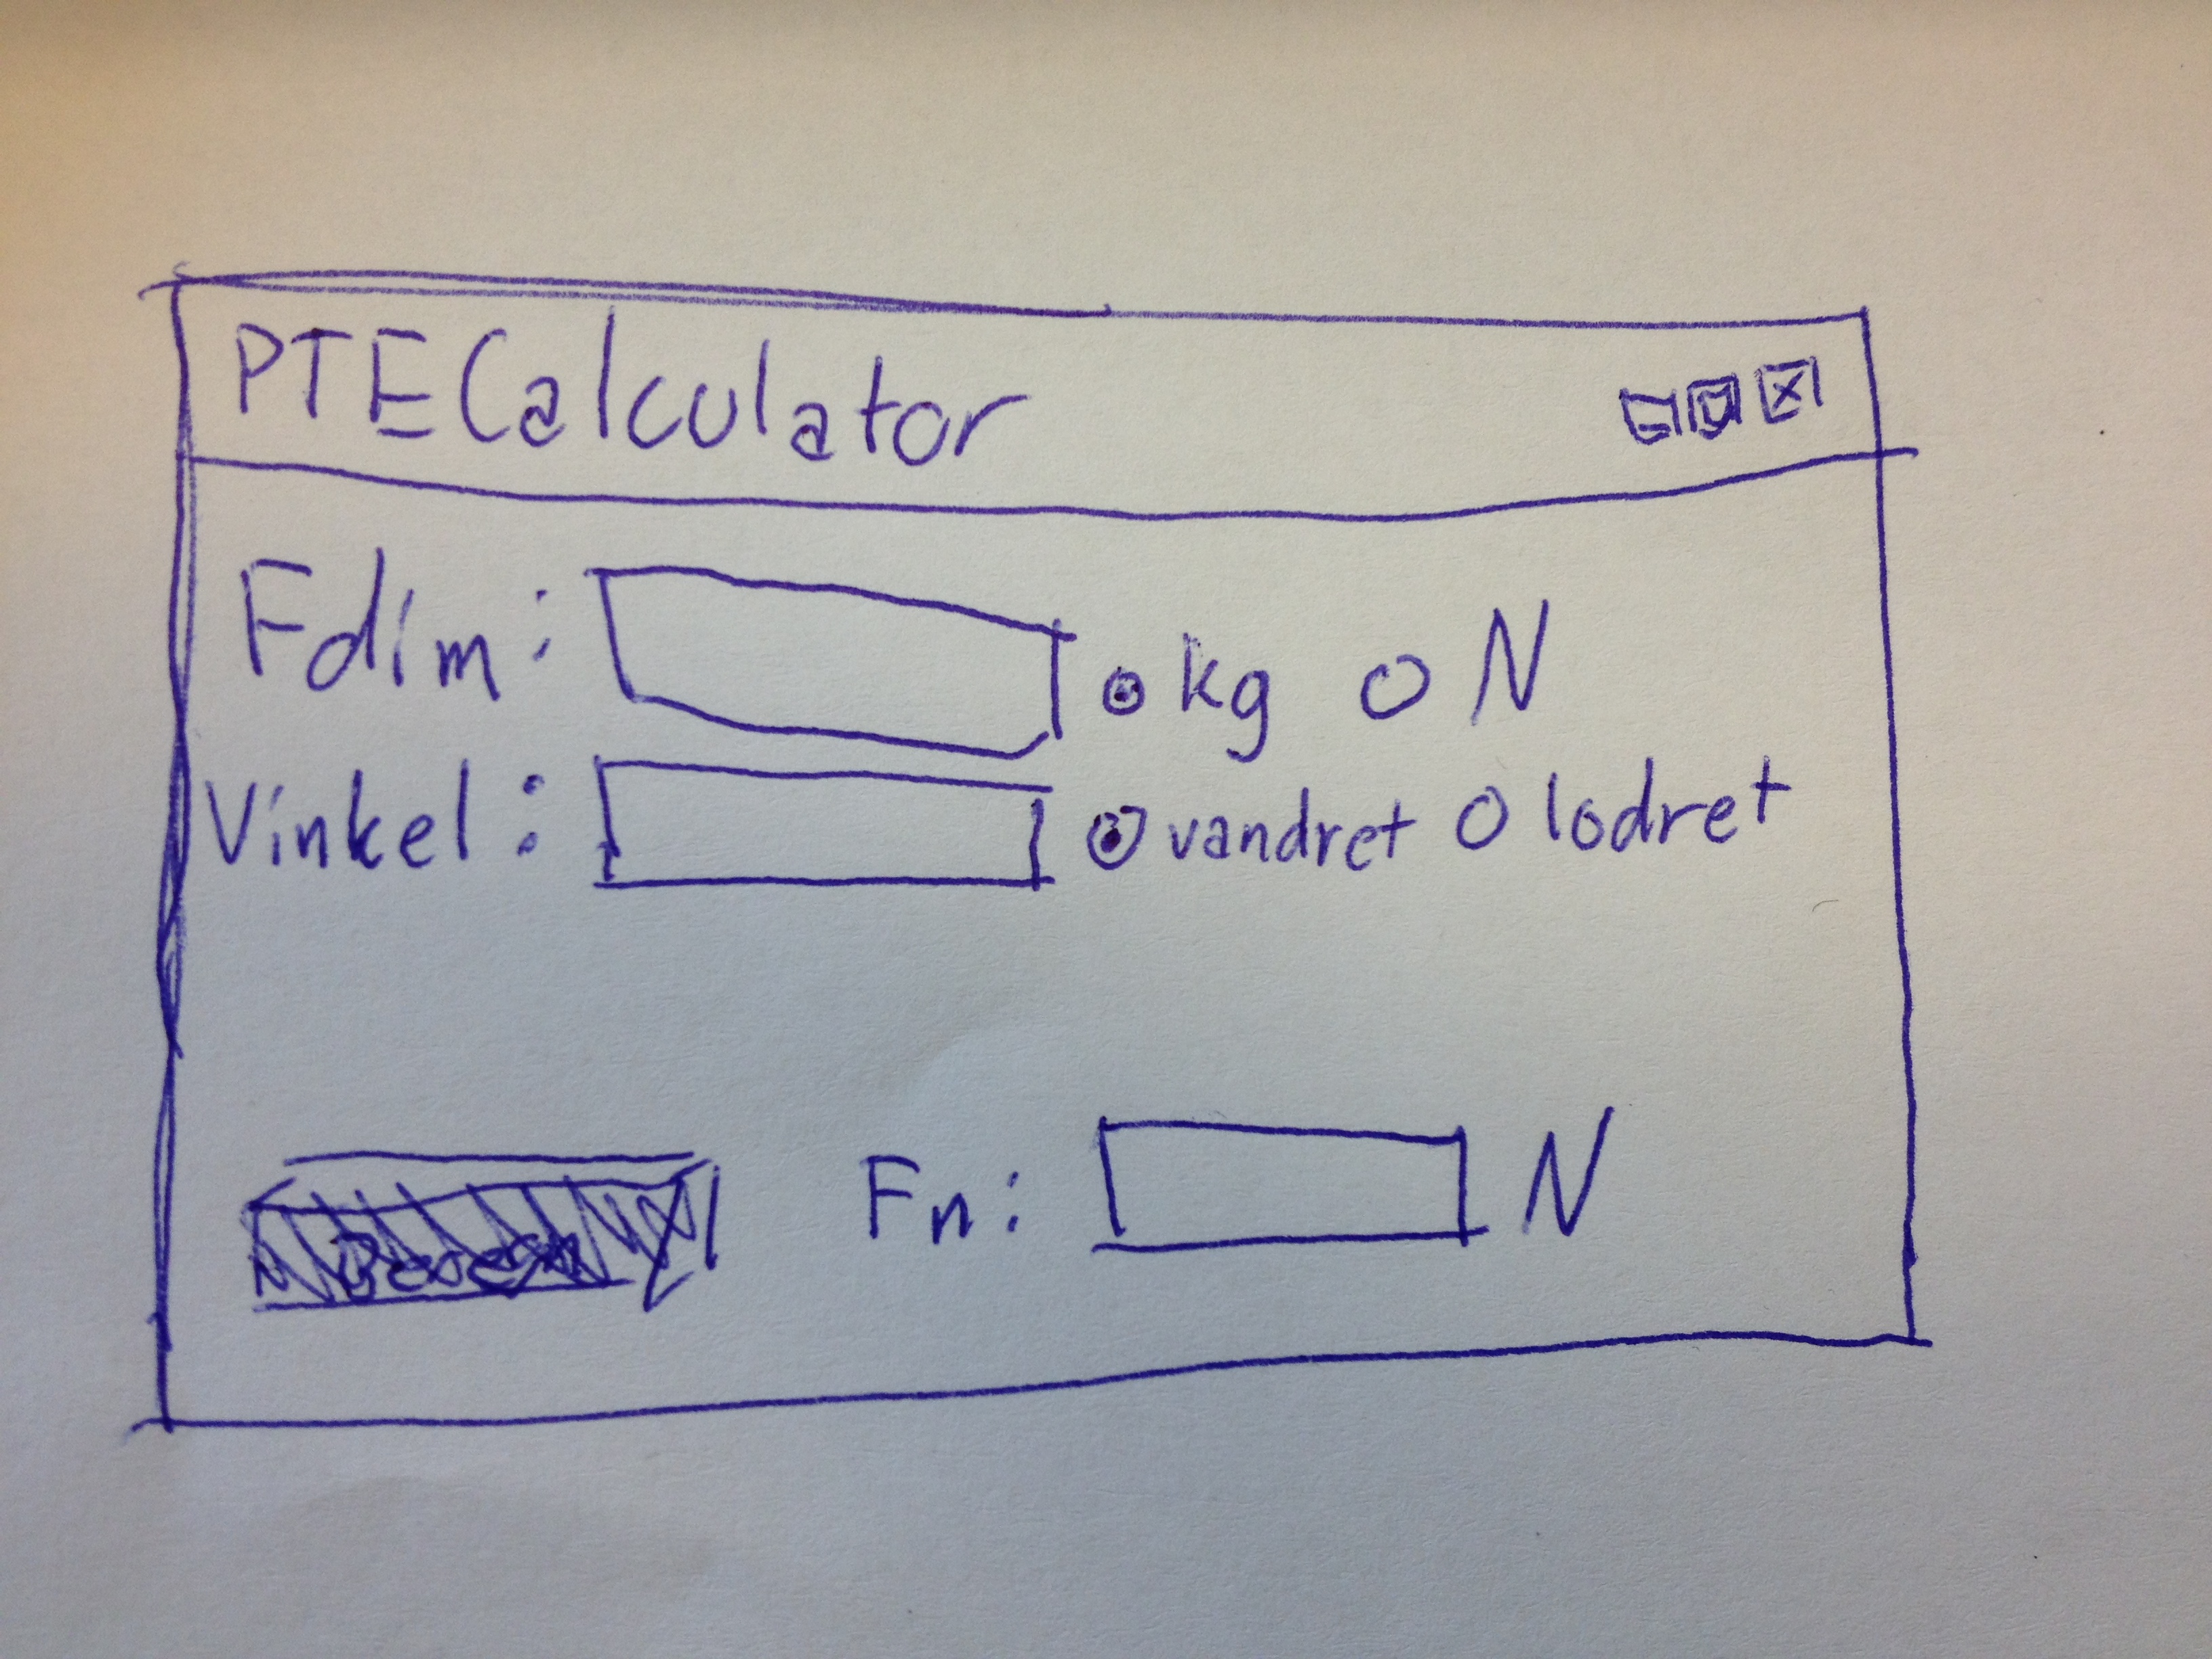 PTECalculator
Fdim: kg N
Vinkel: vandret lodret
Fn: N